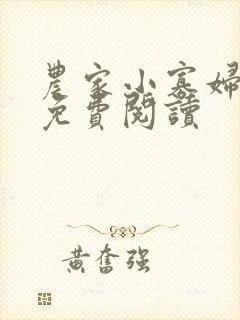 農家小寡婦
免費閱讀
黃奮強